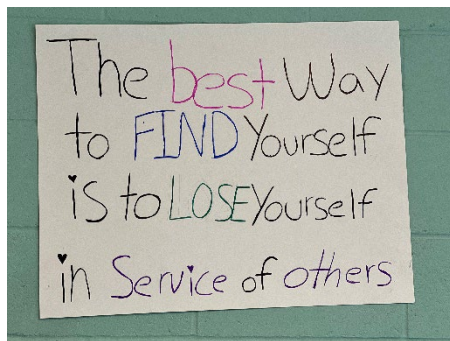 The best Way
to FIND Yourself
is to LOSE Yourself
in Service of others